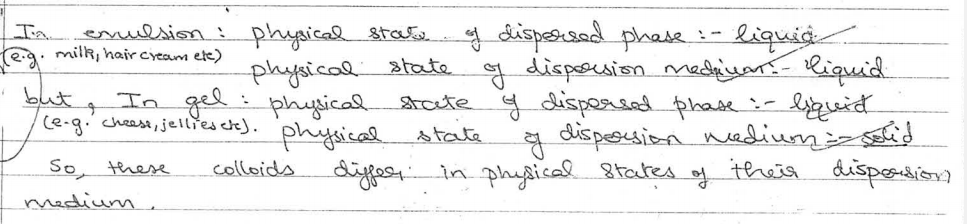 In emulsion : physical state of dispersed phase :- liquid
(e.g. milk, hair cream etc)
physical state of dispersion medium :- liquid
but, In gel : physical state of dispersed phase :- liquid
(e.g. cheese, jellies etc). physical state of dispersion medium :- solid
So, these colloids differ in physical states of their dispersion
medium.